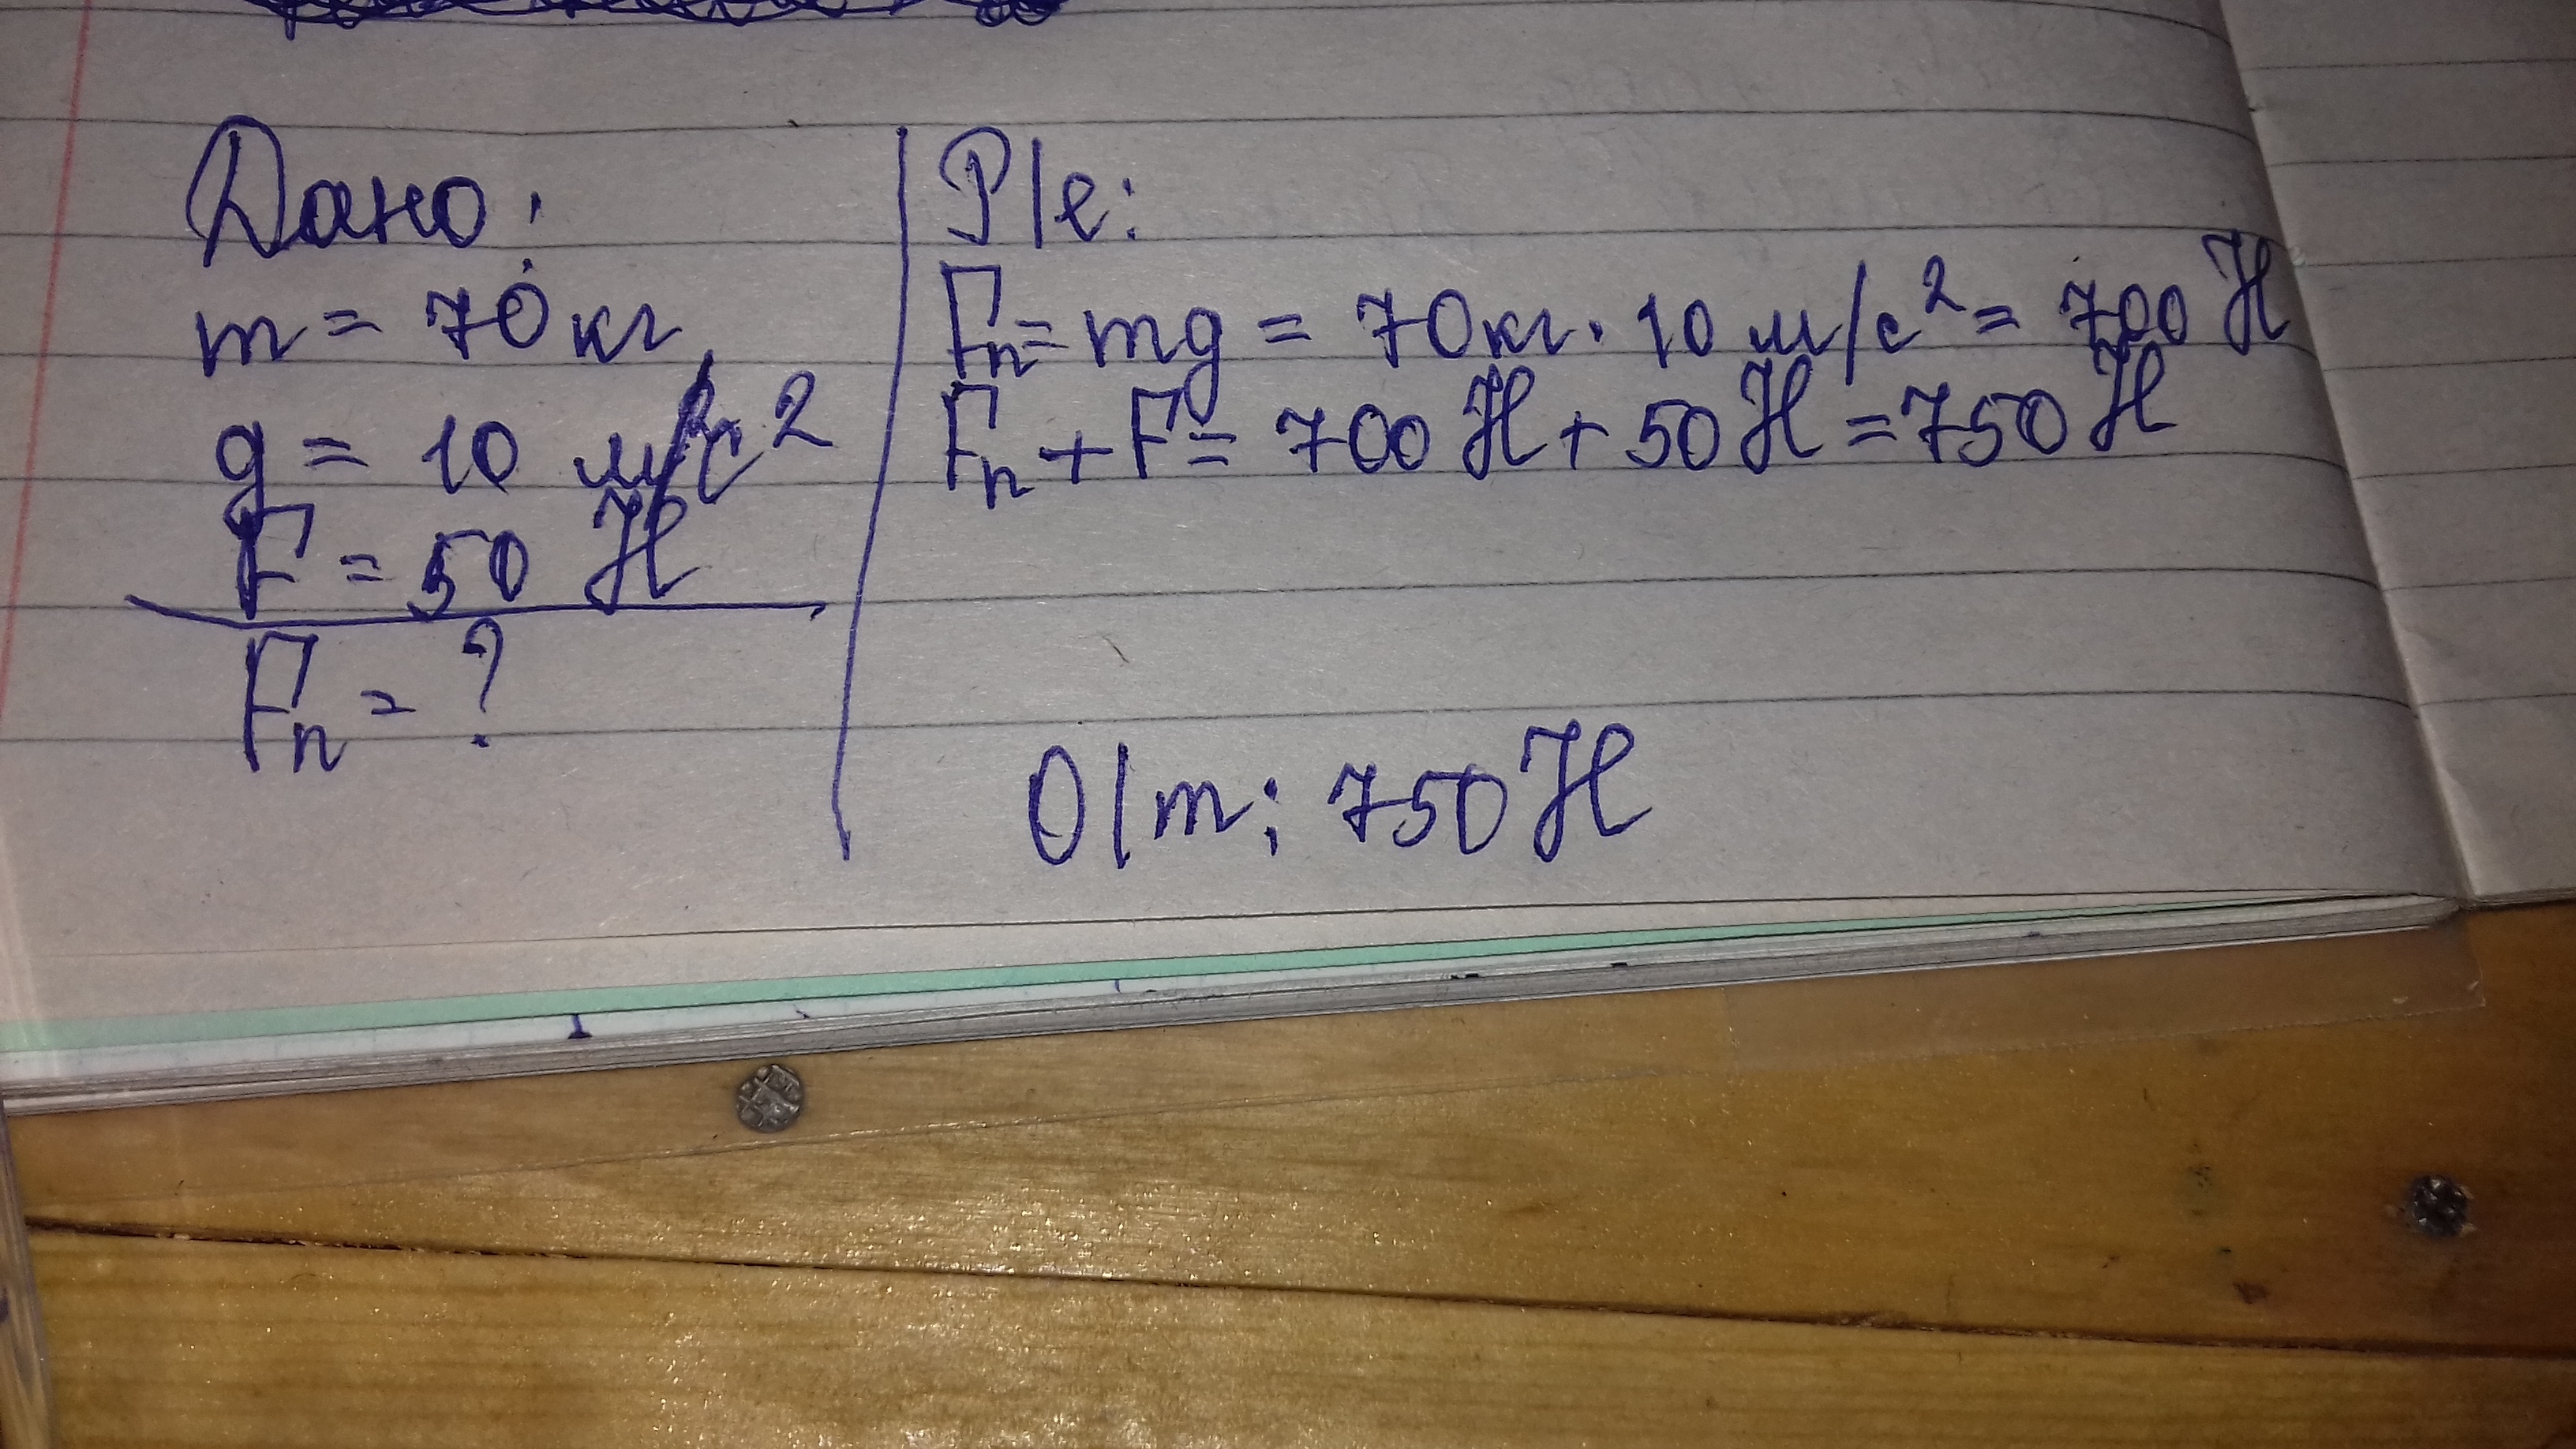 Дано:
m = 70 кг
g = 10 м/с²
F = 50 Н
Fn = ?
Р/е:
Fn = mg = 70кг · 10 м/с² = 700 Н
Fn + F = 700 Н + 50 Н = 750 Н
О/т: 750 Н